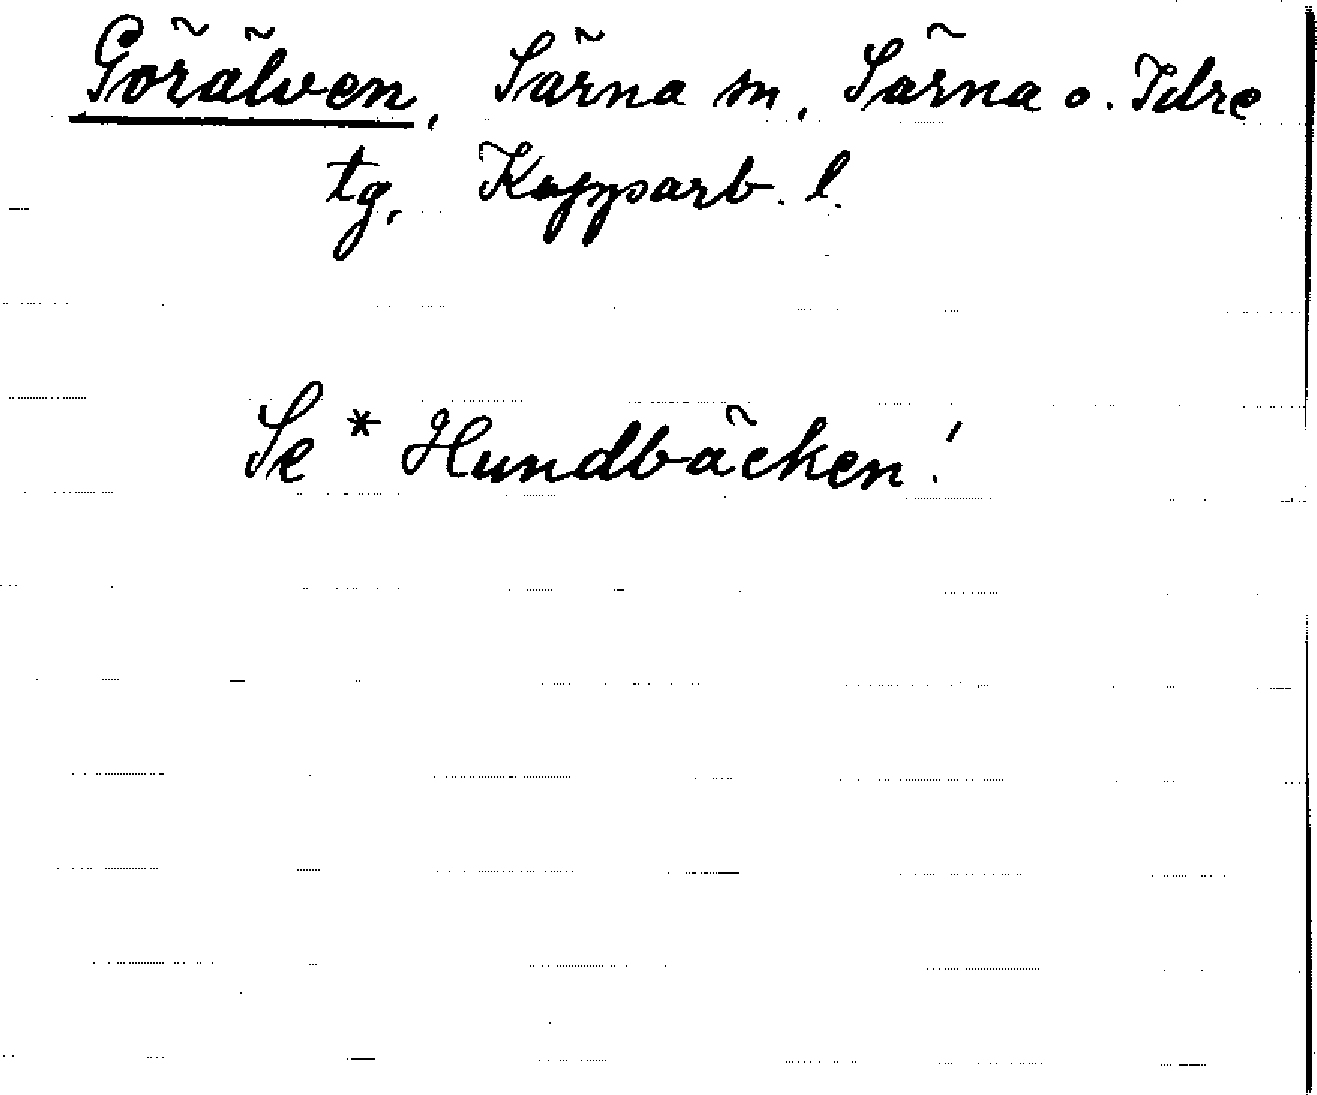 Görälven, Särna sn, Särna o. Idre
tg, Kopparb. l.
Se * Hundbäcken!